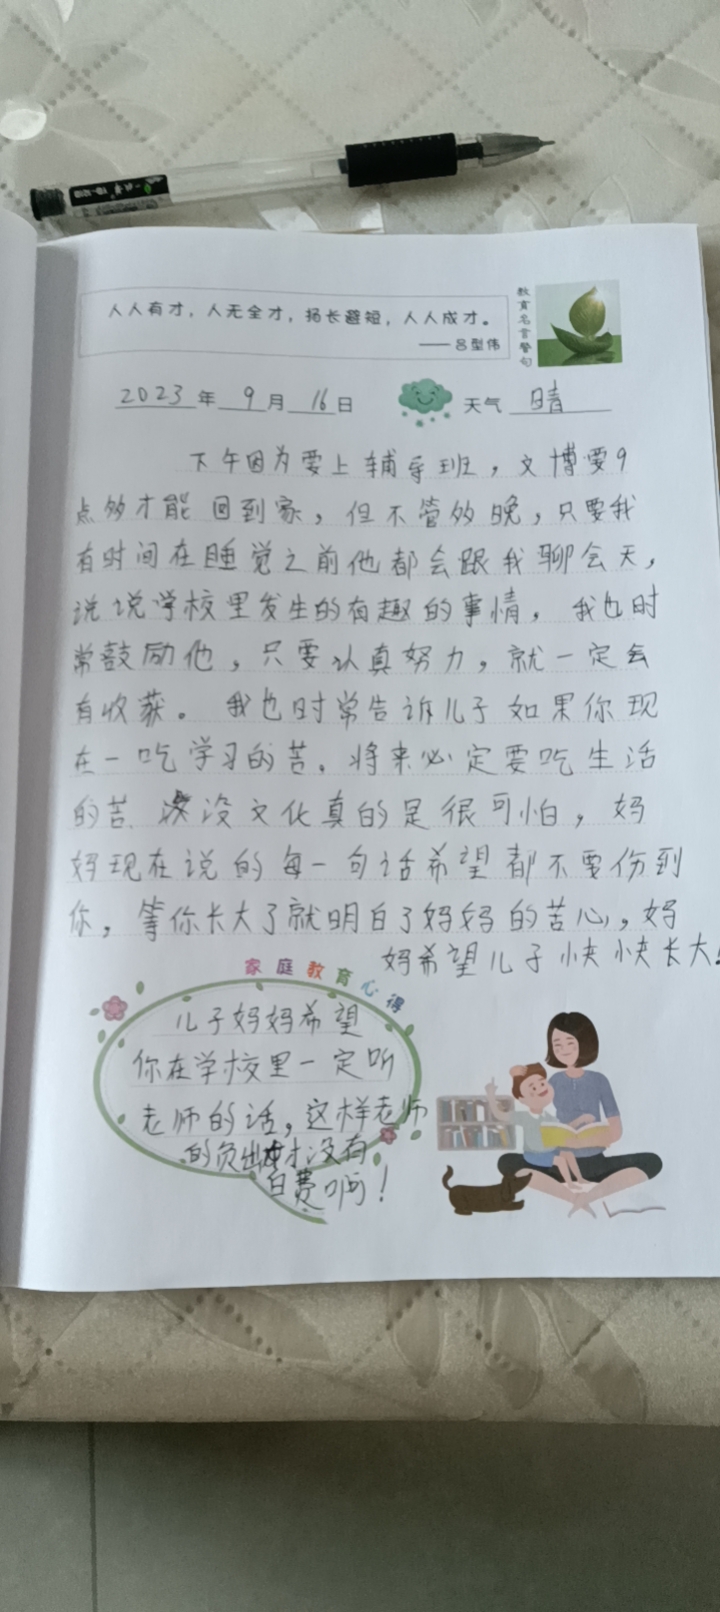 人人有才，人无全才，扬长避短，人人成才。
——吕型伟
教育名言警句
2023年9月16日 天气 晴
下午因为要上辅导班，文博要9
点多才能回到家，但不管多晚，只要我
有时间在睡觉之前他都会跟我聊会天，
说说学校里发生的有趣的事情，我也时
常鼓励他，只要认真努力，就一定会
有收获。我也时常告诉儿子如果你现
在一吃学习的苦，将来必定要吃生活
的苦 没文化真的是很可怕，妈
妈现在说的每一句话希望都不要伤到
你，等你长大了就明白了妈妈的苦心，妈
妈希望儿子快快长大！
家庭教育心得
儿子妈妈希望
你在学校里一定听
老师的话，这样老师
的负出才没有
白费啊！